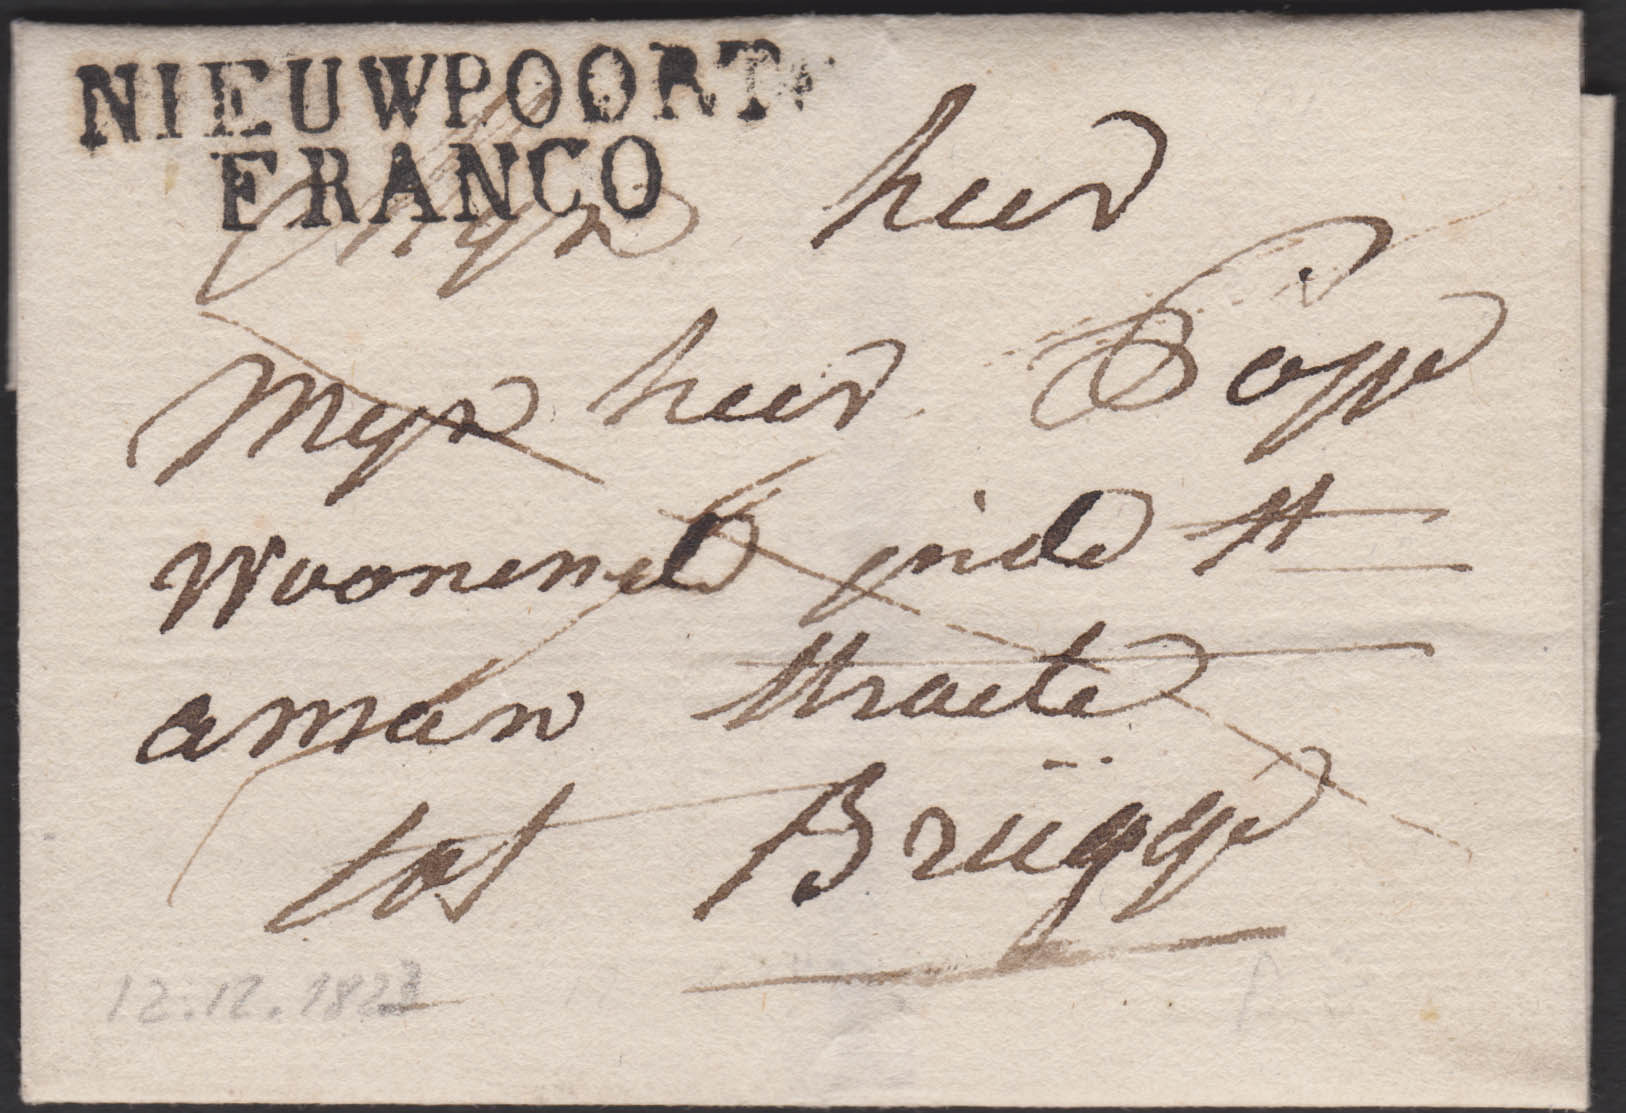 NIEUWPOORT
FRANCO
Mijn heer
Mijn heer Poppe
Woonende inde st
aman straete
tot Brügge
12.12.1823